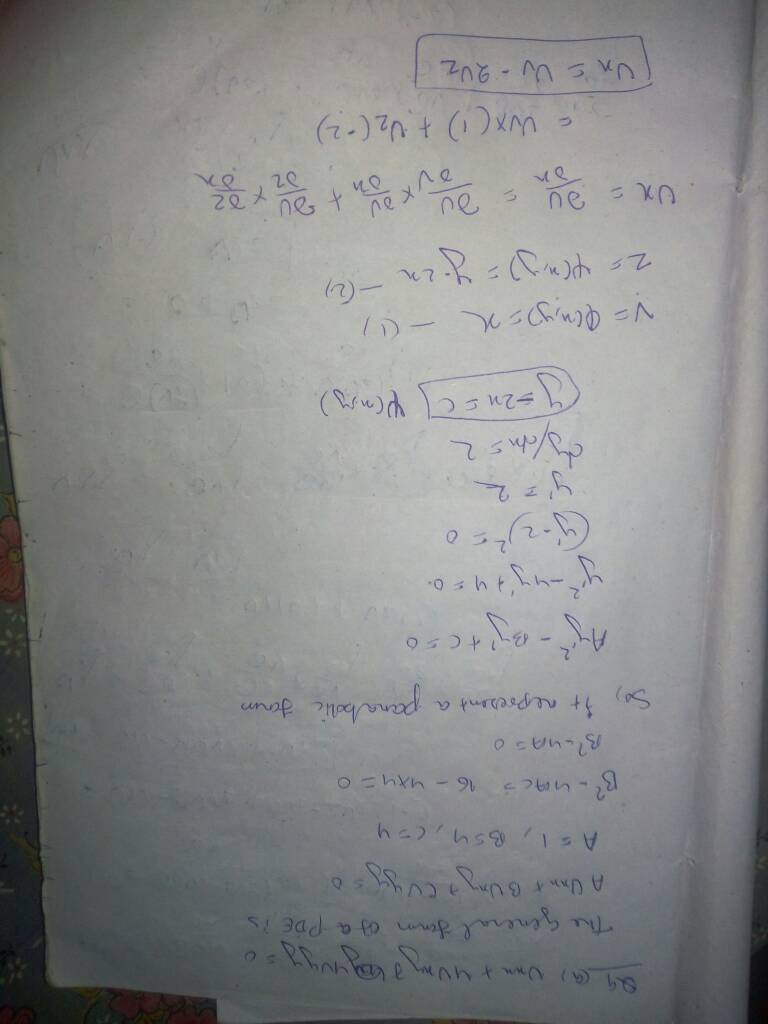 Q4 (a) Uxx + 4Uxy + 4Uyy = 0
The general form of a PDE is
A Uxx + B Uxy + C Uyy = 0
A = 1, B = 4, C = 4
B² - 4AC = 16 - 4×4 = 0
B² - 4A = 0
So, It represent a parabolic form
Ay'² - By' + C = 0
y'² - 4y' + 4 = 0
(y' - 2)² = 0
y' = 2
dy/dx = 2
y - 2x = C ψ(x,y)
V = φ(x,y) = x — (1)
Z = ψ(x,y) = y - 2x — (2)
Ux = ∂U/∂x = ∂U/∂V × ∂V/∂x + ∂U/∂Z × ∂Z/∂x
= Uv×(1) + Uz(-2)
Ux = Uv - 2Uz